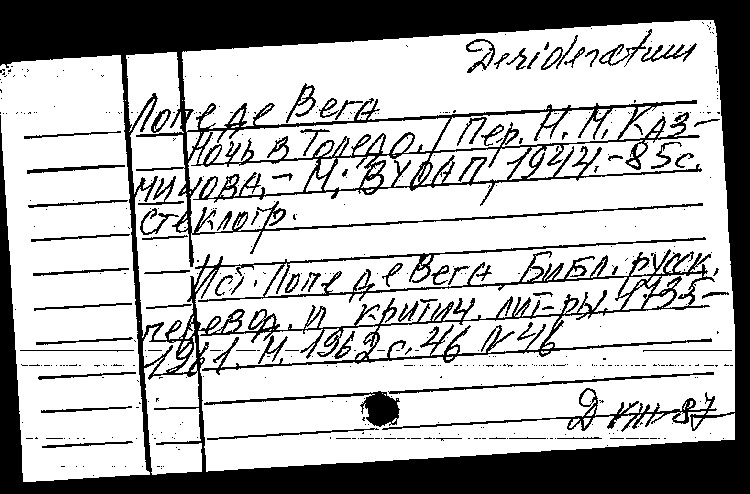 Desideratum
Лопе де Вега
Ночь в Толедо. / Пер. М. М. Каз-
мичова. – М.; ВУОАП, 1944. – 85 с.
стеклогр.
Ист. Лопе де Вега. Библ. русск.
перевод. и критич. лит-ры. 1735–
1961. М. 1962 с. 46 N 46
Д VIII-87